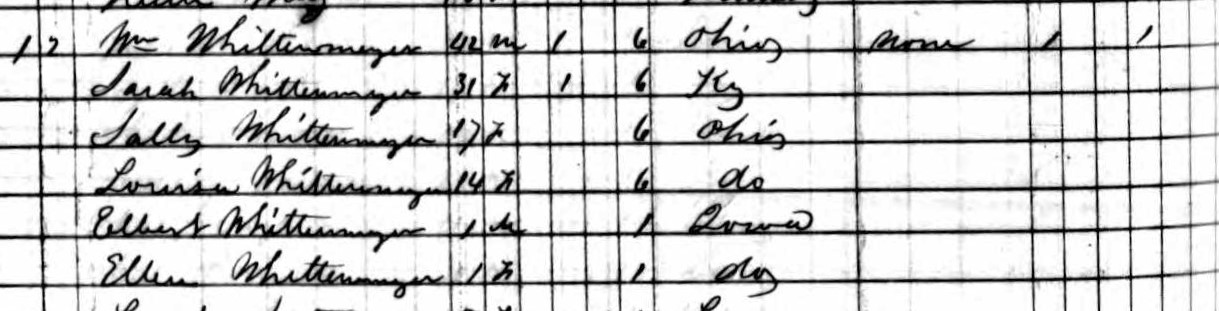 12 Wm Whittenmeyer 42 m 1 6 Ohio none 1 1
Sarah Whittenmeyer 31 F 1 6 Ky
Sally Whittenmeyer 17 F 6 Ohio
Louisa Whittenmeyer 14 F 6 do
Elbert Whittenmeyer 1 M 1 Iowa
Ellen Whittenmeyer 1 F 1 do